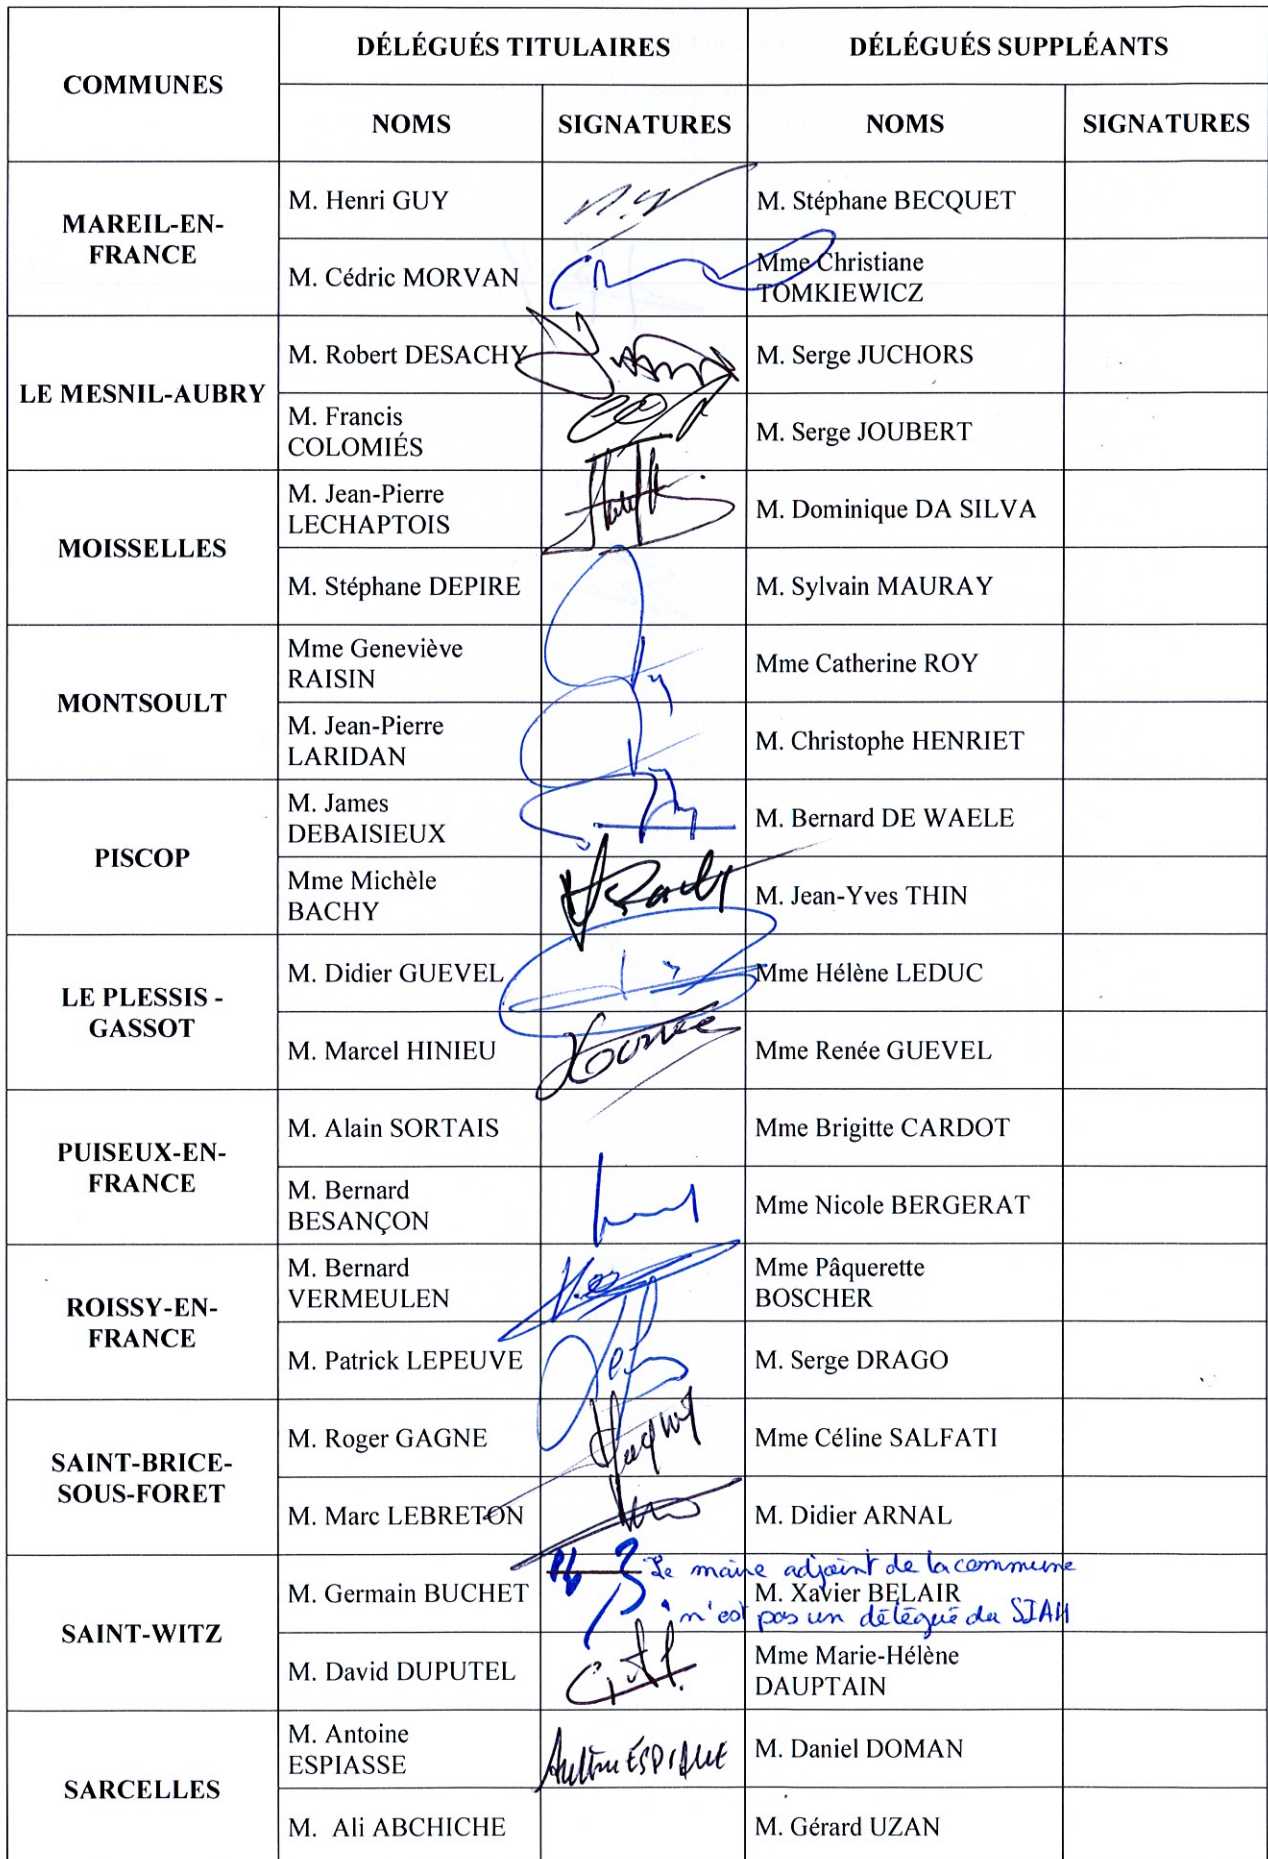 COMMUNES
DÉLÉGUÉS TITULAIRES
DÉLÉGUÉS SUPPLÉANTS
NOMS
SIGNATURES
NOMS
SIGNATURES
MAREIL-EN-
FRANCE
M. Henri GUY
M. Stéphane BECQUET
M. Cédric MORVAN
Mme Christiane
TOMKIEWICZ
LE MESNIL-AUBRY
M. Robert DESACHY
M. Serge JUCHORS
M. Francis
COLOMIÉS
M. Serge JOUBERT
MOISSELLES
M. Jean-Pierre
LECHAPTOIS
M. Dominique DA SILVA
M. Stéphane DEPIRE
M. Sylvain MAURAY
MONTSOULT
Mme Geneviève
RAISIN
Mme Catherine ROY
M. Jean-Pierre
LARIDAN
M. Christophe HENRIET
PISCOP
M. James
DEBAISIEUX
M. Bernard DE WAELE
Mme Michèle
BACHY
M. Jean-Yves THIN
LE PLESSIS -
GASSOT
M. Didier GUEVEL
Mme Hélène LEDUC
M. Marcel HINIEU
Mme Renée GUEVEL
PUISEUX-EN-
FRANCE
M. Alain SORTAIS
Mme Brigitte CARDOT
M. Bernard
BESANÇON
Mme Nicole BERGERAT
ROISSY-EN-
FRANCE
M. Bernard
VERMEULEN
Mme Pâquerette
BOSCHER
M. Patrick LEPEUVE
M. Serge DRAGO
SAINT-BRICE-
SOUS-FORET
M. Roger GAGNE
Mme Céline SALFATI
M. Marc LEBRETON
M. Didier ARNAL
SAINT-WITZ
M. Germain BUCHET
Le maire adjoint de la commune
n'est pas un délégué du SIAH
M. Xavier BELAIR
M. David DUPUTEL
Mme Marie-Hélène
DAUPTAIN
SARCELLES
M. Antoine
ESPIASSE
M. Daniel DOMAN
M. Ali ABCHICHE
M. Gérard UZAN